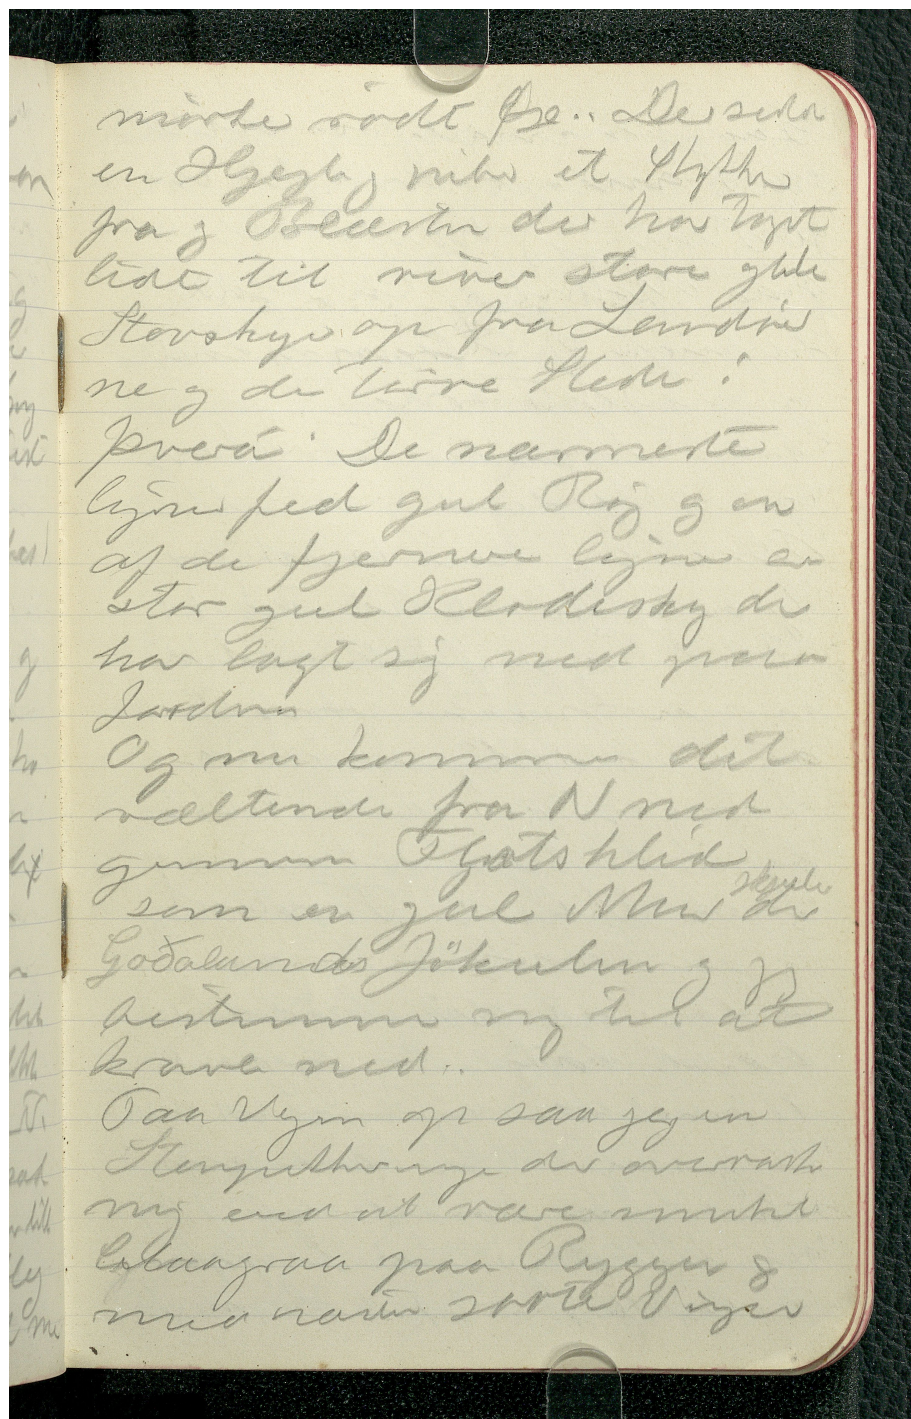 mørke rødt Øje.. Der sidder
en Hjejle og piber et Stykke
fra og Blæsten der har taget
lidt til river store gule
Støvskyer op fra Landøer
ne og de tørre Steder i
þverá. De nærmeste
ligner fed gul Røg og en
af de fjernere ligner en
stor gul Klodesky der
har lagt sig ned paa
Jorden
Og nu kommer det
væltende fra N ned
gennem Fljótshlid
som en gul Mur der skjuler
Goðalands Jökulen og jeg
bestemmer mig til at
kravle ned..
Paa Vejen op saa jeg en
Stenpikkerunge der overraskede
mig ved at være smukt
blaagraa paa Ryggen &
med næsten sorte Vinger